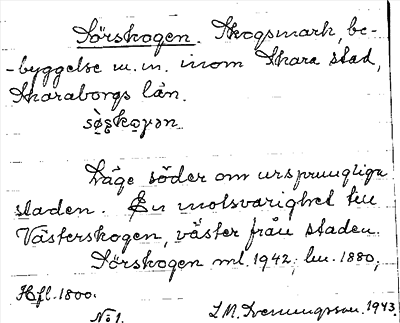 Sörskogen. Skogsmark, be-
-byggelse m.m. inom Skara stad,
Skaraborgs län.
Läge söder om ursprungliga
staden. En motsvarighet till
Västerskogen, väster från staden.
Sörskogen ml. 1942; lm. 1880;
Hfl. 1800.
No 1. 1943.